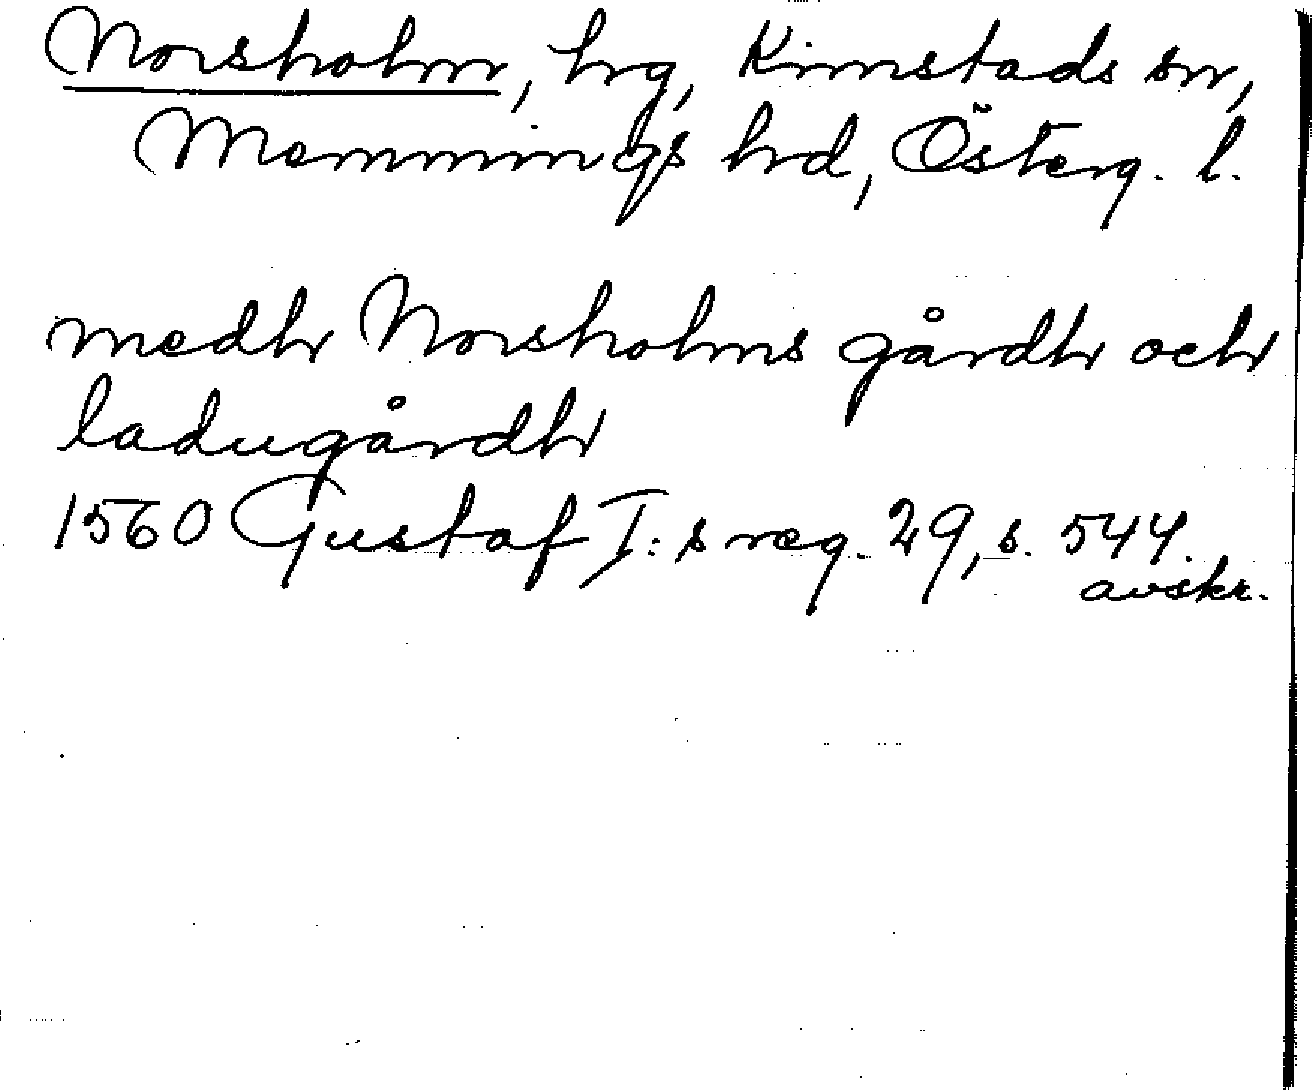 Norsholm, hrg, Kimstads sn,
Memmings hrd, Österg. l.
medh Norsholms gårdh och
ladugårdh
1560 Gustaf I:s reg. 29, s. 544.
avskr.